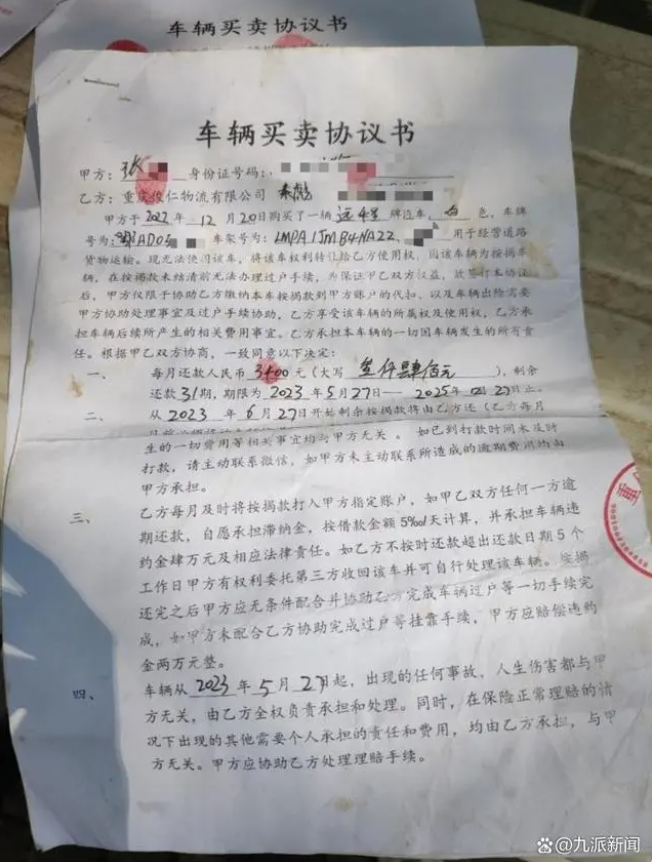 车辆买卖协议书
车辆买卖协议书
甲方：张 身份证号码：
乙方：重庆俊仁物流有限公司
甲方于2022年12月20日购买了一辆远程牌汽车，白色，车牌
号为：AD05 车架号为：LMPA1JMB4NA22 用于经营道路
货物运输。现无法使用该车，将该车权利转让给乙方使用权，因该车为按揭车
辆，在按揭款未结清前无法办理过户手续，为保证甲乙双方权益，故签订本协议
后，甲方仅限于协助乙方缴纳本车按揭款到甲方账户的代扣，以及车辆出险需要
甲方协助处理事宜及过户手续协助，乙方享受该车辆的所属权及使用权，乙方承
担车辆后续所产生的相关费用事宜。乙方承担本车辆的一切因车辆发生的所有责
任。根据甲乙双方协商，一致同意以下决定：
一、 每月还款人民币3400元（大写 叁仟肆佰元 ），剩余
还款31期，期限为2023年5月27日——2025年 月27日止。
二、 从2023年6月27日开始剩余按揭款将由乙方还（乙方每月
生的一切费用等相关事宜均与甲方无关。如已到打款时间未及时
打款，请主动联系微信，如甲方未主动联系所造成的逾期费用均由
甲方承担。
三、 乙方每月及时将按揭款打入甲方指定账户，如甲乙双方任何一方逾
期还款，自愿承担滞纳金，按借款金额5‰天计算，并承担车辆违
约金肆万元及相应法律责任。如乙方不按时还款超出还款日期5个
工作日甲方有权利委托第三方收回该车并可自行处理该车辆。按揭
还完之后甲方应无条件配合并协助乙方完成车辆过户等一切手续完
成，如甲方未配合乙方协助完成过户等挂靠手续，甲方应赔偿违约
金两万元整。
四、 车辆从2023年5月27日起，出现的任何事故，人生伤害都与甲
方无关，由乙方全权负责承担和处理。同时，在保险正常理赔的情
况下出现的其他需要个人承担的责任和费用，均由乙方承担，与甲
方无关。甲方应协助乙方处理理赔手续。
重
@九派新闻